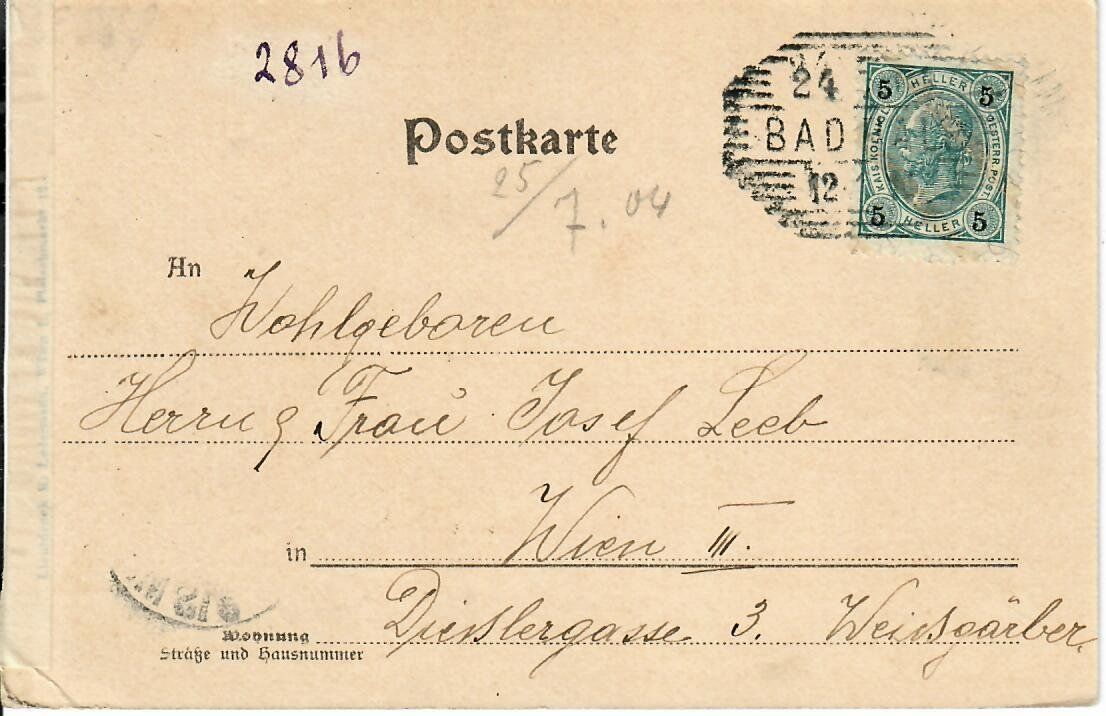 2816
Postkarte
24
BAD
12
5 HELLER 5
KAIS. KOENIGL. OESTERR. POST.
5 HELLER 5
25/7.04
An
Wohlgeboren
Herrn & Frau Josef Leeb
in Wien III.
Dießlergasse 3. Weißgärber
Wohnung
Straße und Hausnummer